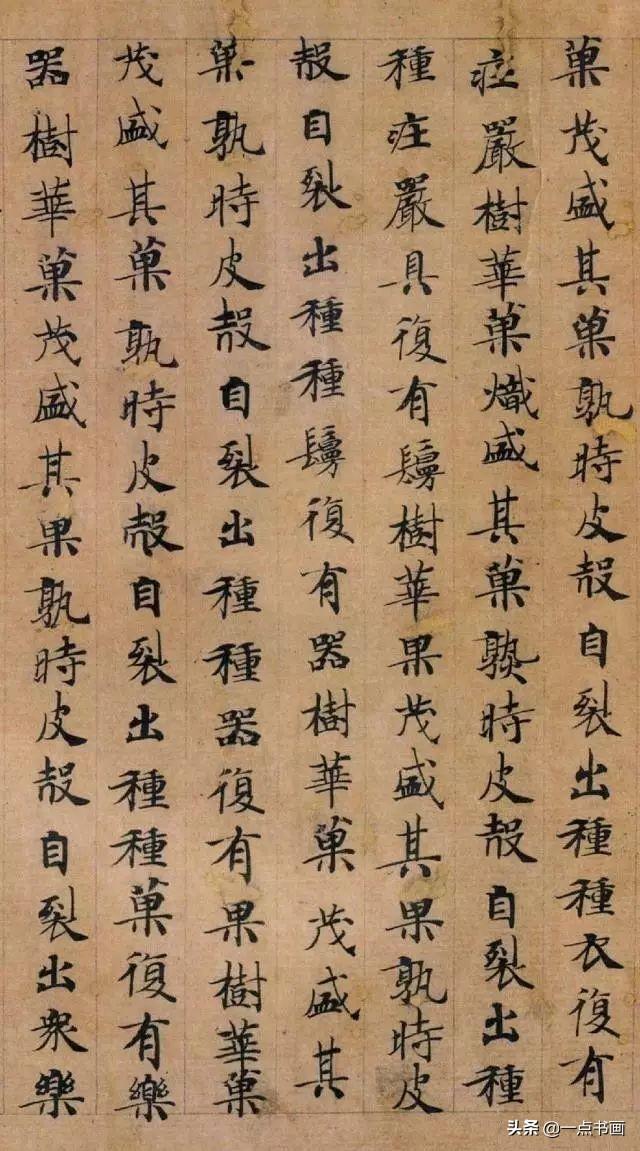 菓茂盛其菓孰時皮殼自裂出種種衣復有
庄嚴樹華菓熾盛其菓孰時皮殼自裂出種
種庄嚴具復有鬘樹華果茂盛其果孰時皮
殼自裂出種種鬘復有器樹華菓茂盛其
菓孰時皮殼自裂出種種器復有果樹華菓
茂盛其菓孰時皮殼自裂出種種菓復有樂
器樹華菓茂盛其果孰時皮殼自裂出衆樂
头条 @一点书画